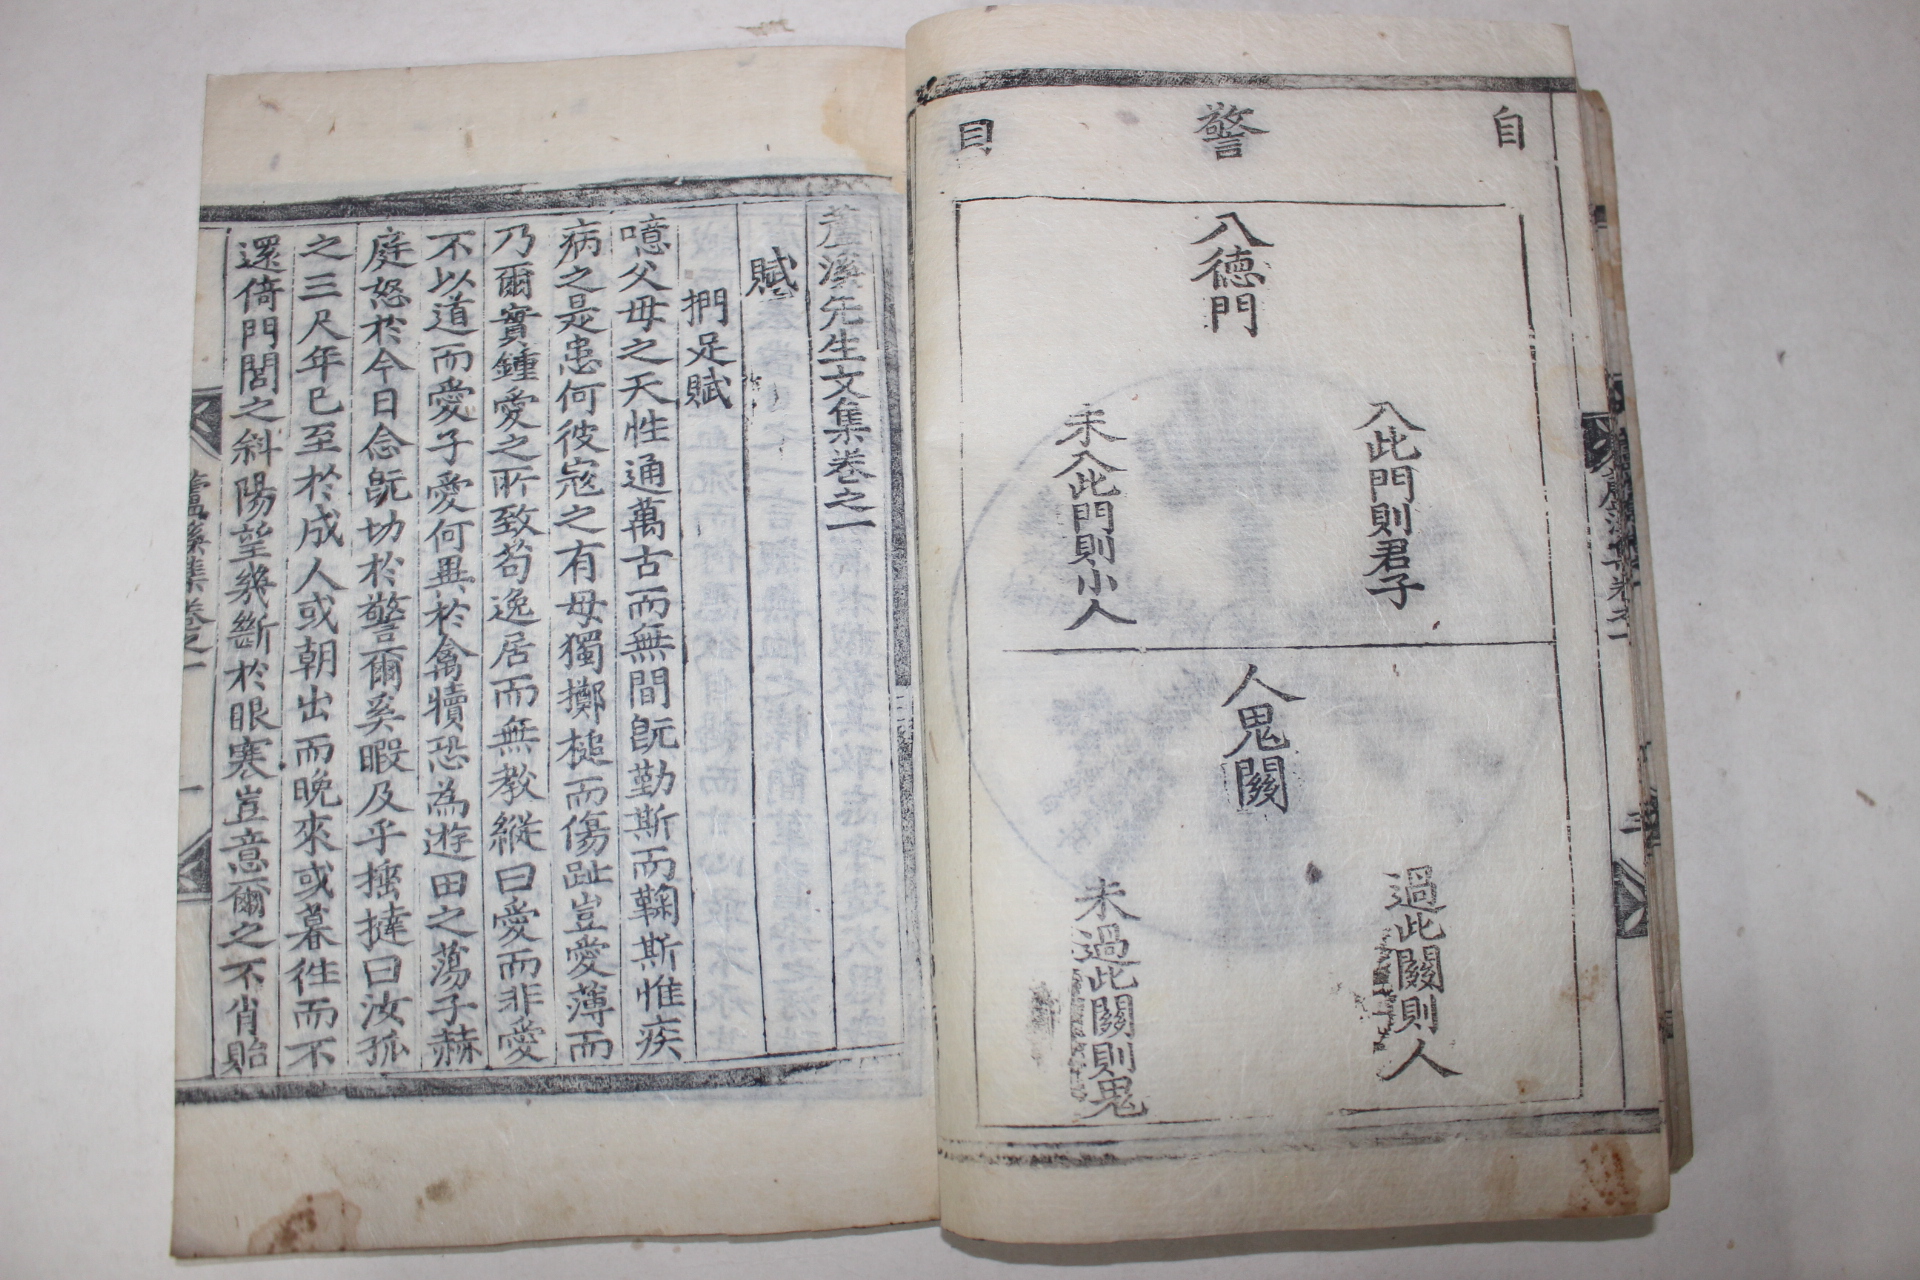 自警目
入德門
入此門則君子
未入此門則小人
人鬼關
過此關則人
未過此關則鬼
蘆溪先生文集卷之一
賦
捫足賦
噫父母之天性通萬古而無間旣勤斯而鞠斯惟疾
病之是患何彼寇之有母獨擲槌而傷趾豈愛薄而
乃爾實鍾愛之所致苟逸居而無教縱曰愛而非愛
不以道而愛子愛何異於禽犢恐爲遊田之蕩子赫
庭怒於今日念旣切於警爾奚暇及乎捶撻曰汝孤
之三尺年已至於成人或朝出而晩來或暮徃而不
還倚門閭之斜陽望幾斷於眼寒豈意爾之不肖貽
蘆溪集卷之一
一